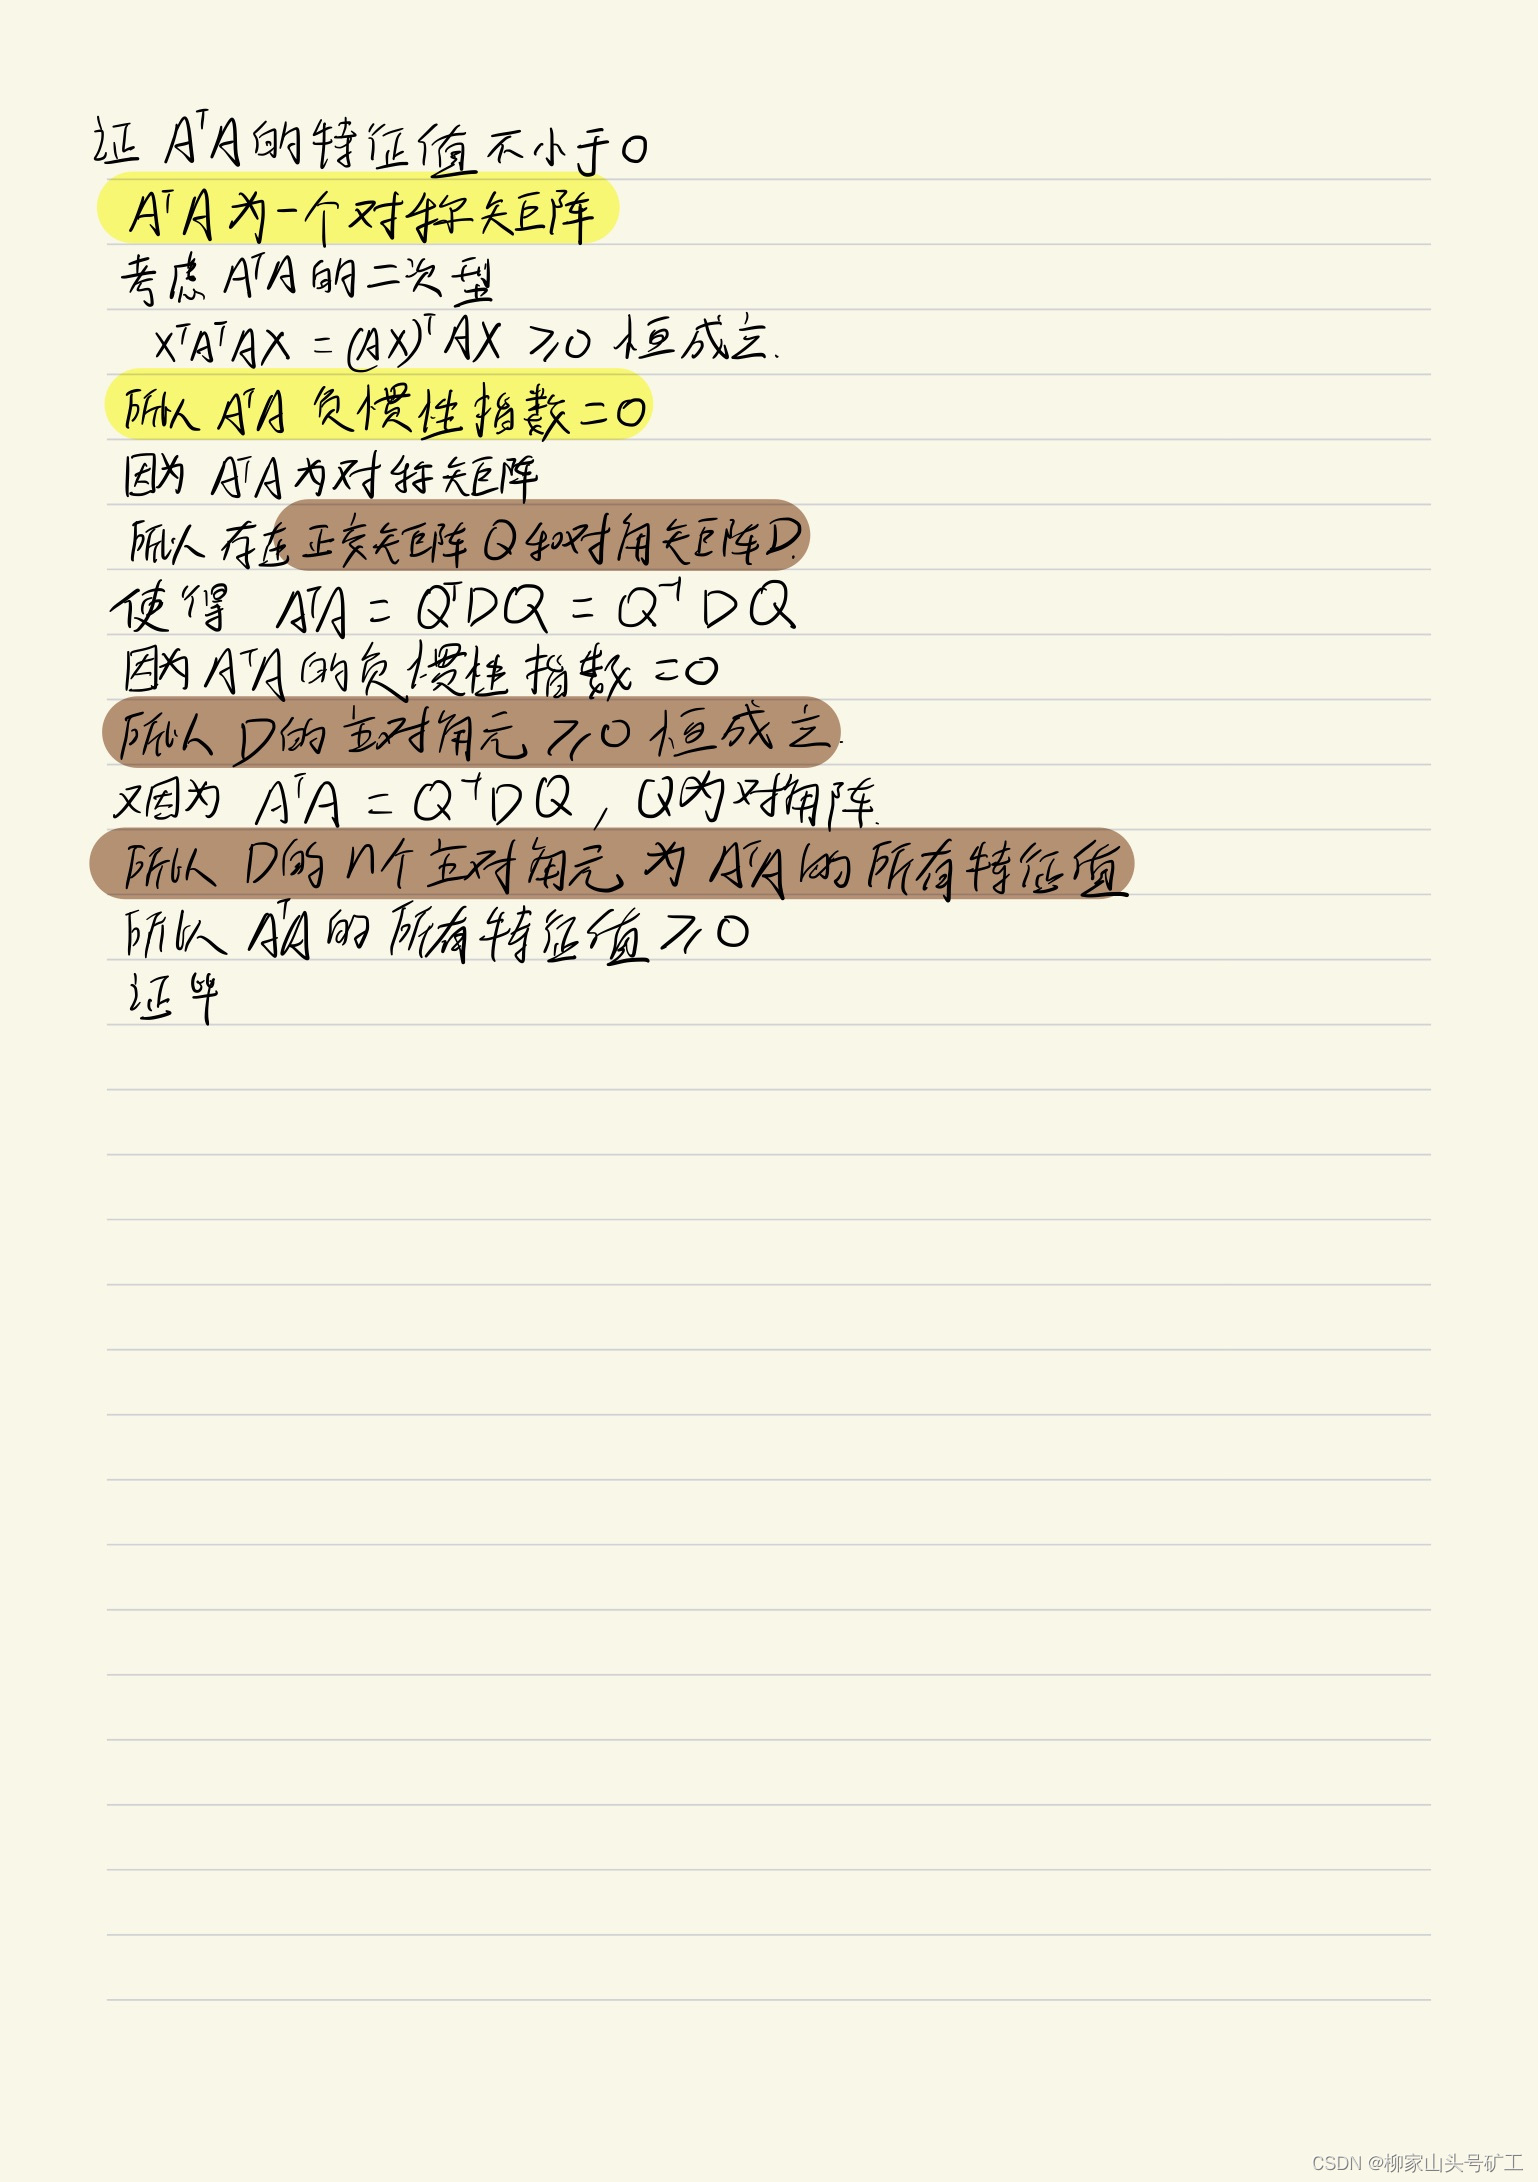 证 AᵀA的特征值不小于0
AᵀA为一个对称矩阵
考虑AᵀA的二次型
XᵀAᵀAX=(AX)ᵀAX≥0 恒成立.
所以 AᵀA 负惯性指数=0
因为 AᵀA为对称矩阵
所以存在正交矩阵Q和对角矩阵D.
使得 AᵀA=QᵀDQ=Q⁻¹DQ
因为AᵀA的负惯性指数=0
所以 D的主对角元≥0 恒成立.
又因为 AᵀA=Q⁻¹DQ, Q为对角阵.
所以 D的n个主对角元为AᵀA的所有特征值
所以 AᵀA的所有特征值≥0
证毕
CSDN @柳家山头号矿工